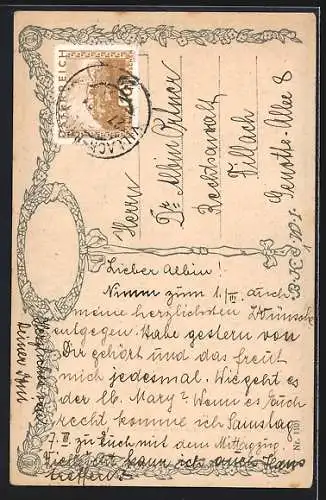 ÖSTERREICH
VILLACH
Herrn
Dr. Albin
Rechtsanwalt
Villach
Allee 8
B.K.W.I.
Nr. 1101
Lieber Albin!
Nimm zum 1./III. auch
meine herzlichsten Wünsche
entgegen. Habe gestern von
Dir gehört und das freut
mich jedesmal. Wie geht es
der lb. Mary? Wenn es Euch
recht komme ich Samstag
7. III. zu Euch mit dem Mittagzug.
Vielleicht kann ich auch Hans
treffen.
Herzlichst
Deiner